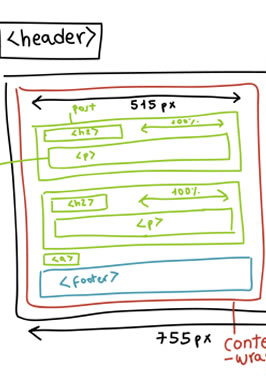 <header>
515 px
post
<h2>
100%
<p>
<h2>
100%
<p>
<a>
<footer>
755 px
conte
-wra